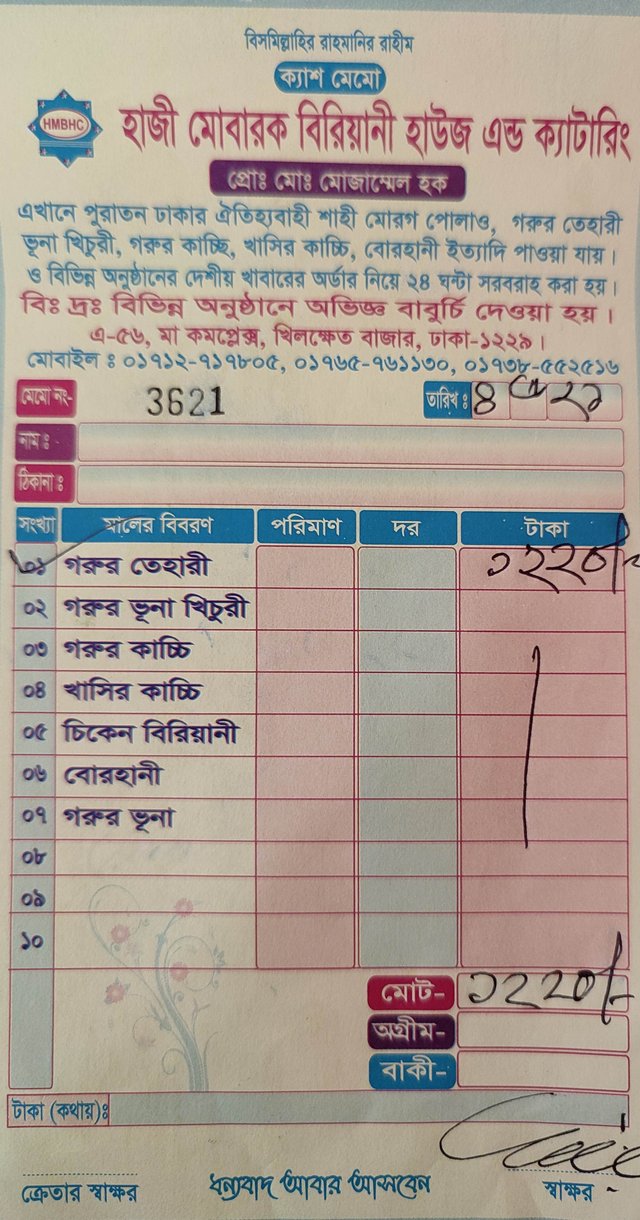 বিসমিল্লাহির রাহমানির রাহীম
ক্যাশ মেমো
HMBHC
হাজী মোবারক বিরিয়ানী হাউজ এন্ড ক্যাটারিং
প্রোঃ মোঃ মোজাম্মেল হক
এখানে পুরাতন ঢাকার ঐতিহ্যবাহী শাহী মোরগ পোলাও, গরুর তেহারী
ভূনা খিচুরী, গরুর কাচ্ছি, খাসির কাচ্ছি, বোরহানী ইত্যাদি পাওয়া যায়।
ও বিভিন্ন অনুষ্ঠানের দেশীয় খাবারের অর্ডার নিয়ে ২৪ ঘন্টা সরবরাহ করা হয়।
বিঃ দ্রঃ বিভিন্ন অনুষ্ঠানে অভিজ্ঞ বাবুর্চি দেওয়া হয়।
এ-৫৬, মা কমপ্লেক্স, খিলক্ষেত বাজার, ঢাকা-১২২৯।
মোবাইল : ০১৯১২-৭১৭৮০৫, ০১৯৬৫-৭৬১১৩০, ০১৭৩৮-৫৫২৫১৬
মেমো নং- 3621 তারিখ : ৪
নাম :
ঠিকানা :
সংখ্যা মালের বিবরণ পরিমাণ দর টাকা
০১ গরুর তেহারী ১২২০/-
০২ গরুর ভূনা খিচুরী
০৩ গরুর কাচ্চি
০৪ খাসির কাচ্চি
০৫ চিকেন বিরিয়ানী
০৬ বোরহানী
০৭ গরুর ভূনা
০৮
০৯
১০
মোট- ১২২০/-
অগ্রীম-
বাকী-
টাকা (কথায়)ঃ
ক্রেতার স্বাক্ষর ধন্যবাদ আবার আসবেন স্বাক্ষর